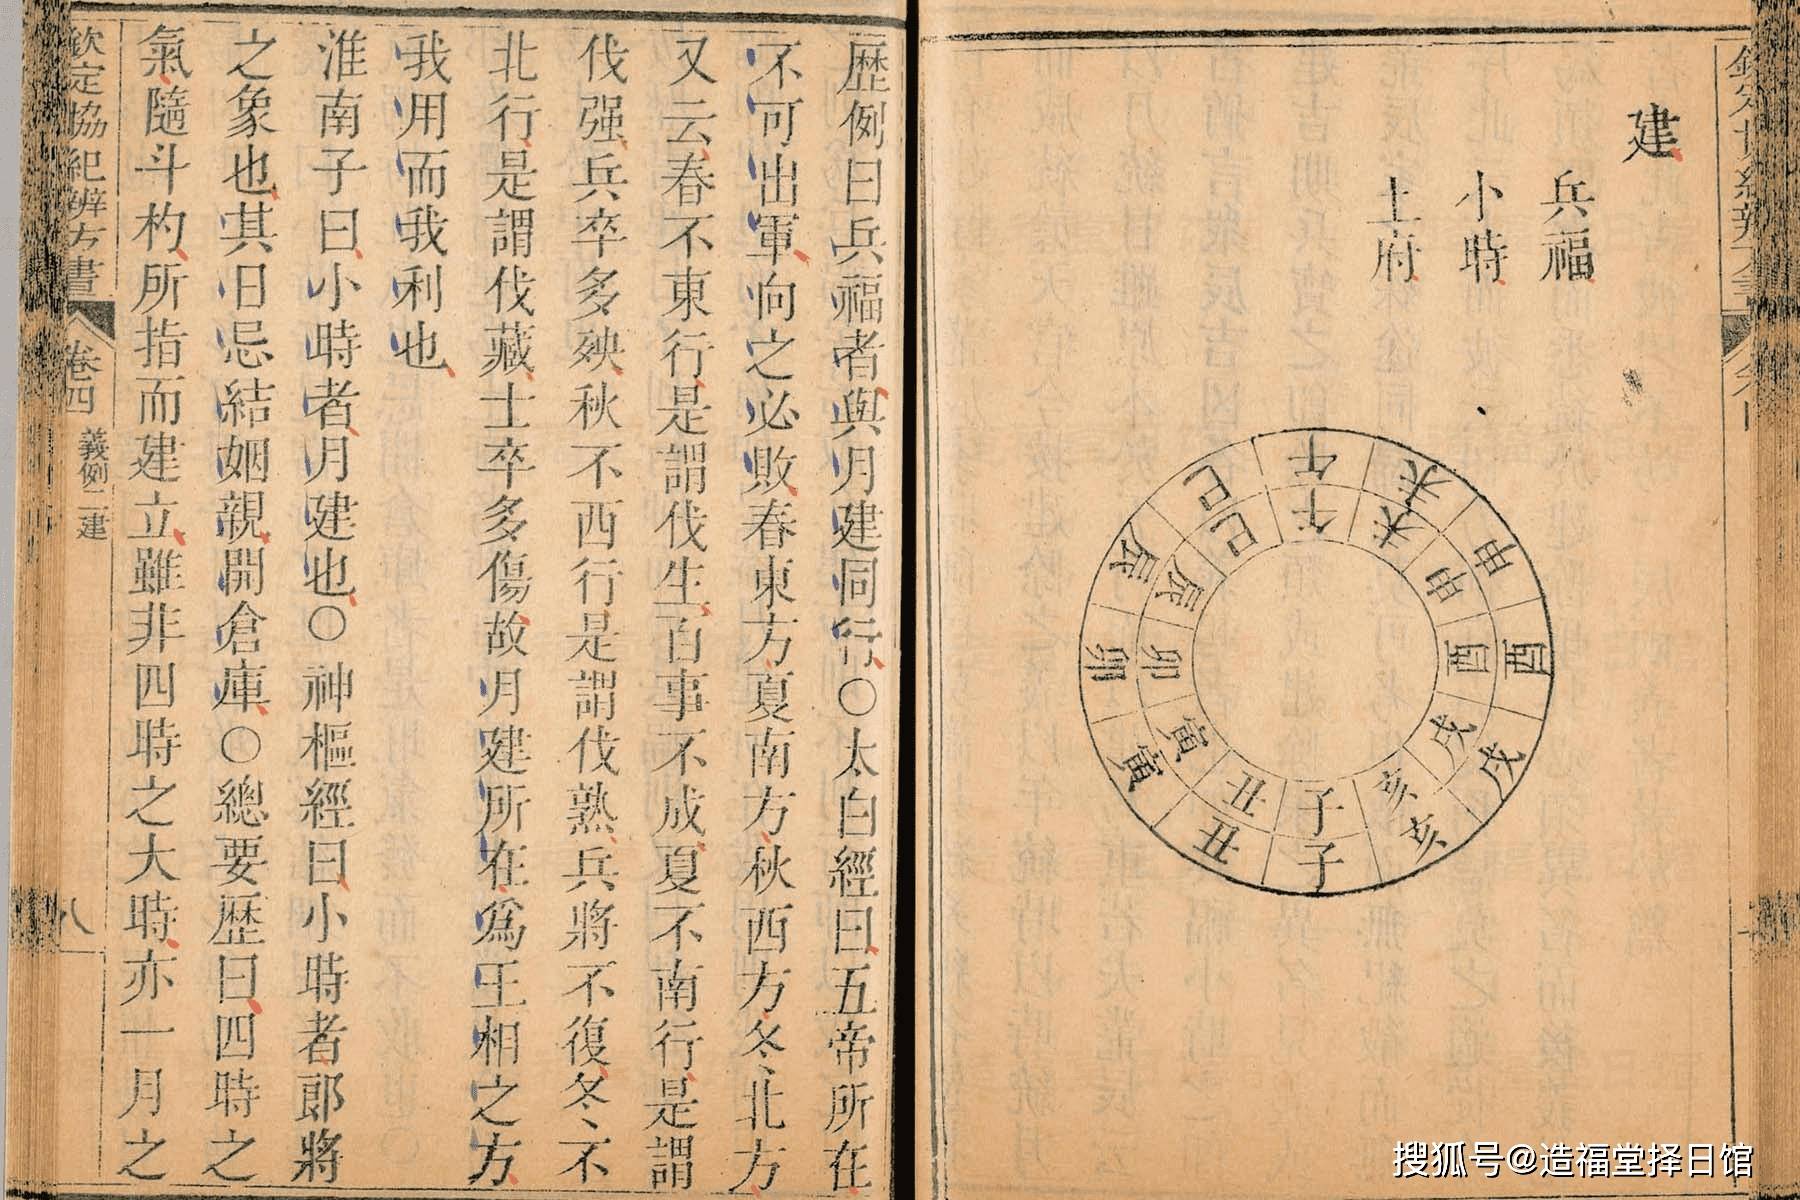 建
兵福
小時
土府
子
丑
寅
卯
辰
巳
午
未
申
酉
戌
亥
子
丑
寅
卯
辰
巳
午
未
申
酉
戌
亥
歷例曰兵福者與月建同行○太白經曰五帝所在
不可出軍向之必敗春東方夏南方秋西方冬北方
又云春不東行是謂伐生百事不成夏不南行是謂
伐强兵卒多殃秋不西行是謂伐熟兵將不復冬不
北行是謂伐藏士卒多傷故月建所在為王相之方
我用而我利也
淮南子曰小時者月建也○神樞經曰小時者郎將
之象也其日忌結姻親開倉庫○總要歷曰四時之
氣隨斗杓所指而建立雖非四時之大時亦一月之
欽定協紀辨方書
卷四
義例二建
八
搜狐号@造福堂择日馆